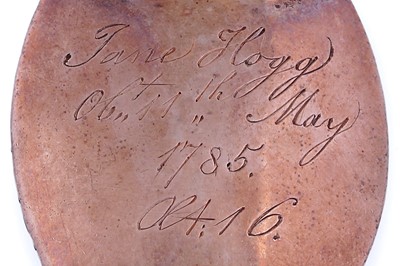 Jane Hogg
Obt. 11th May
1785.
Æt. 16.